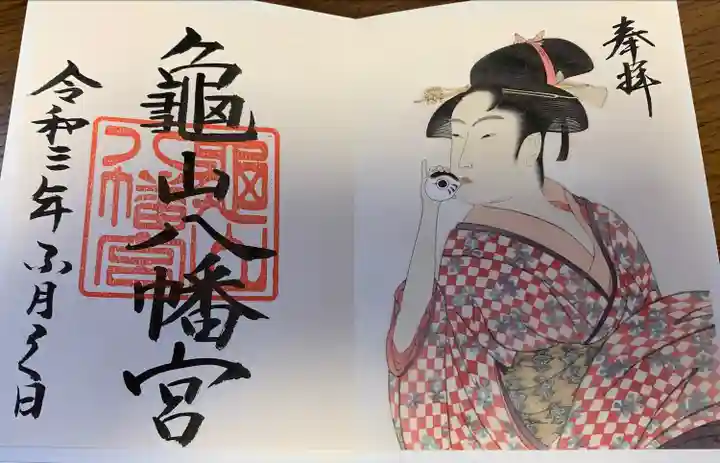 奉拝
龜山八幡宮
龜山
八幡宮
令和三年 月 日